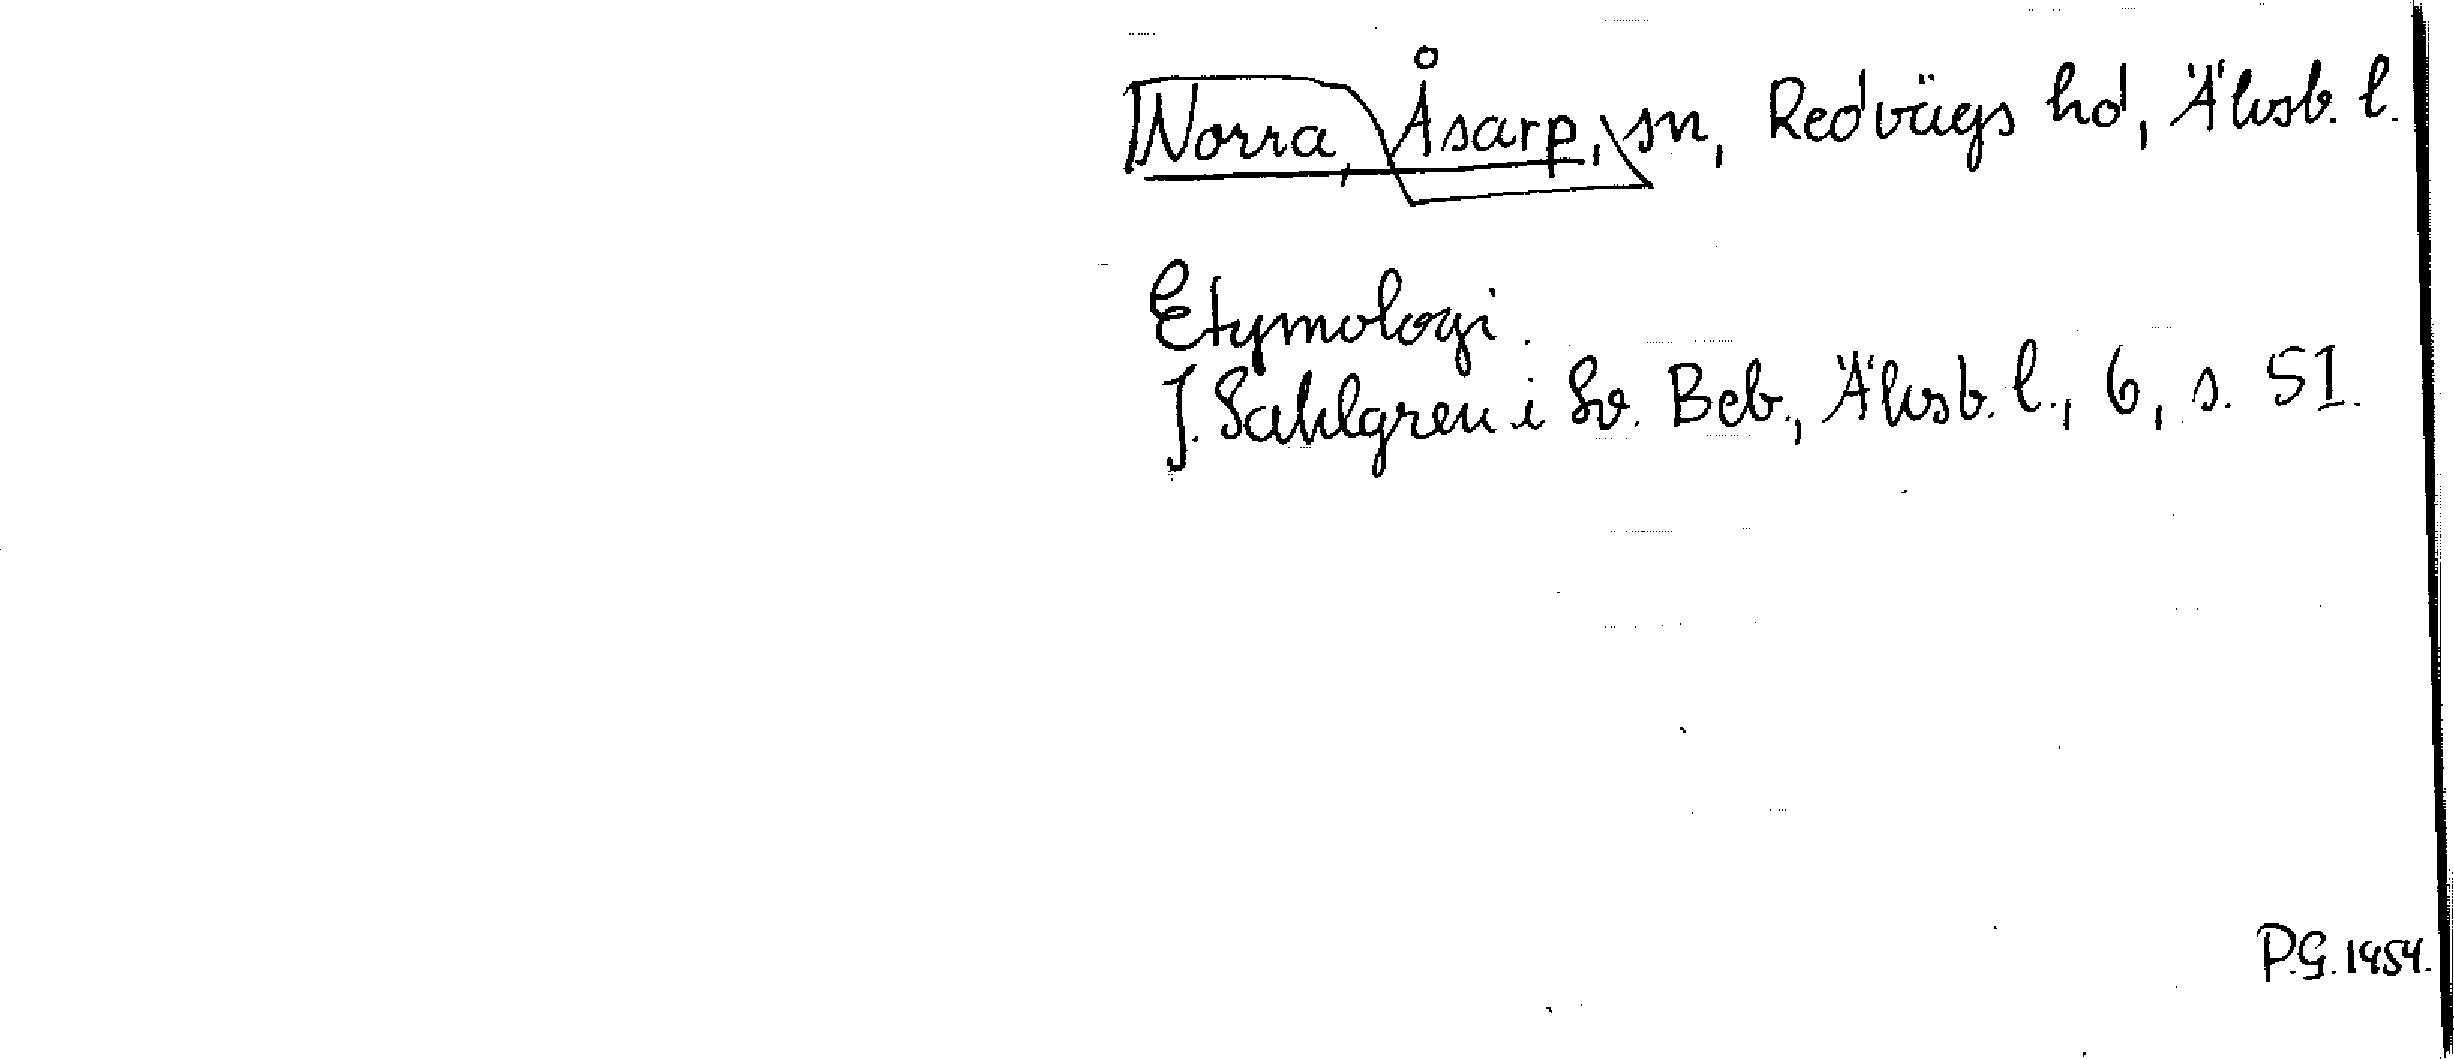 Norra, Åsarp, sn, Redvägs hd, Älvsb. l.
Etymologi.
J. Sahlgren i Sv. Beb., Älvsb. l., 6, s. 51.
P.G. 1954.